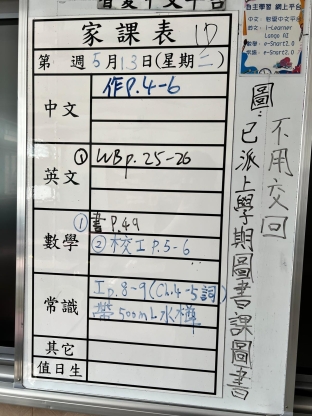 中文平台
自主學習 網上平台
i-Learner
e-Smart2.0
e-Smart2.0
家課表
第 週 5月13日(星期二)
中文 作P.4-6
英文 ① WB p. 25-26
數學 ① 書P.49
② 校工P.5-6
常識 工p.8-9(Ch.4-5詞)
帶500mL水樽
其它
值日生
圖:已派上學期圖書課圖書
不用交回